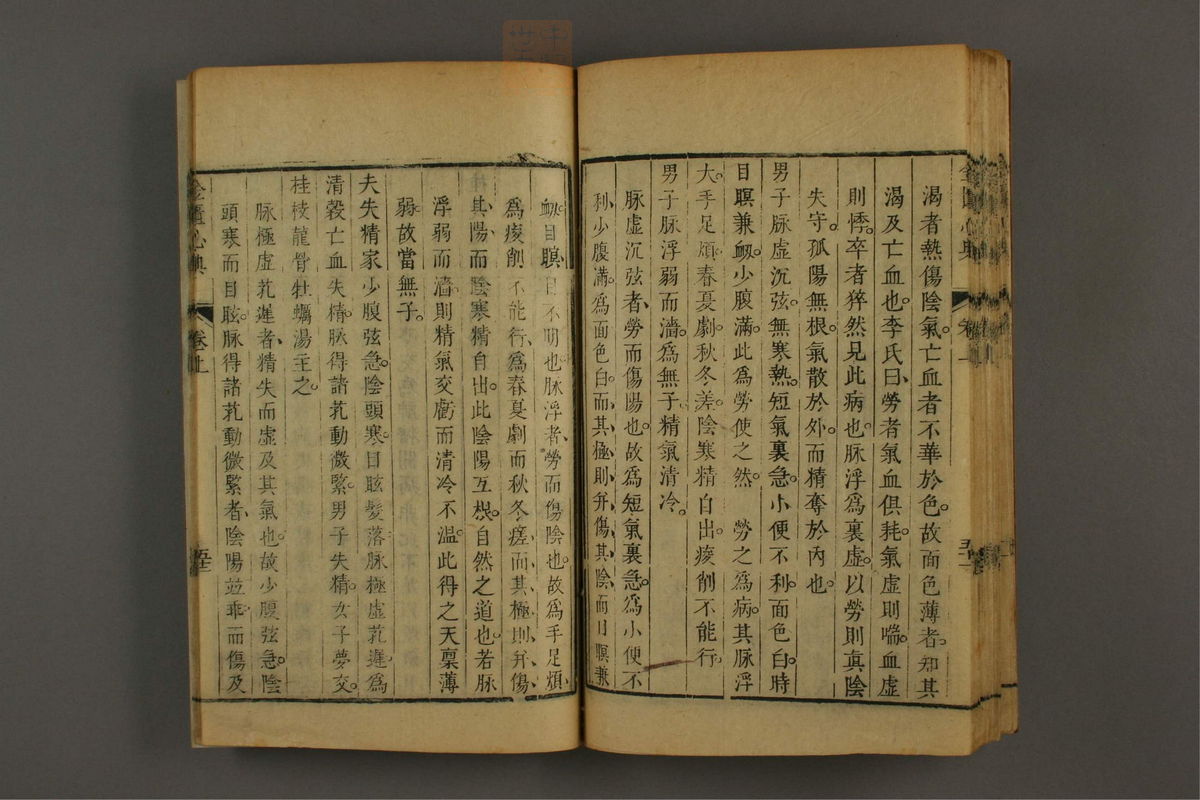 渴者熱傷陰氣亡血者不華於色故面色薄者知其
渴及亡血也李氏曰勞者氣血俱耗氣虛則喘血虛
則悸卒者猝然見此病也脉浮爲裏虛以勞則真陰
失守孤陽無根氣散於外而精奪於內也
男子脉虛沉弦無寒熱短氣裏急小便不利面色白時
目瞑兼衂少腹滿此爲勞使之然 勞之爲病其脉浮
大手足煩春夏劇秋冬差陰寒精自出痠削不能行
男子脉浮弱而濇爲無子精氣清冷
脉虛沉弦者勞而傷陽也故爲短氣裏急爲小便不
利少腹滿爲面色白而其極則并傷其陰而目瞑兼
衂目瞑目不明也脉浮者勞而傷陰也故爲手足煩
爲痠削不能行爲春夏劇而秋冬瘥而其極則并傷
其陽而陰寒精自出此陰陽互根自然之道也若脉
浮弱而濇則精氣交虧而清冷不溫此得之天稟薄
弱故當無子
夫失精家少腹弦急陰頭寒目眩髮落脉極虛芤遲爲
清穀亡血失精脉得諸芤動微緊男子失精女子夢交
桂枝龍骨牡蠣湯主之
脉極虛芤遲者精失而虛及其氣也故少腹弦急陰
頭寒而目眩脉得諸芤動微緊者陰陽並乖而傷及
金匱心典
卷上